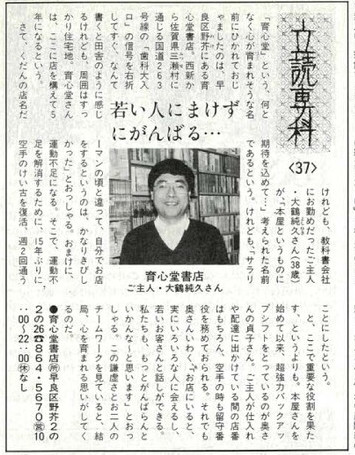 立読専科
〈37〉
若い人にまけず
にがんばる…
「育心堂」という、何と
前にひかれておじ
なく心が育まれそうな名
ゃましたのは、早
良区野芥にある育
心堂書店。西新か
ら佐賀県三瀬村に
通じる国道263
号線の「歯科大入
口」の信号を右折
してすぐ、なんて
書くと田舎のように感じ
るけれども、周囲はすっ
かり住宅地。育心堂さん
は、ここに店を構えて5
年になるという。
さて、くだんの店名だ
けれども、教科書会社
にお勤めだったご主人
・大鶴純久さん(38歳)
が、"本屋というものに
期待を込めて…"考えられた名前
であるという。けれども、「サラリ
ーマンの頃と違って、自分でお店
をするというのは、かなりきびし
かった」とおっしゃる。おまけに、
運動不足になる。そこで、運動不
足を解消するために、15年ぶりに
空手のけい古を復活、週2回通う
育心堂書店
ご主人・大鶴純久さん
ことにしたという。
と、ここで重要な役割を果た
す、というよりも、本屋さんを
始めて以来、超強力バックアッ
プシフトをとっているのが奥さ
んの貞子さん。ご主人が仕入れ
や配達に出かけている間の店番
はもちろん、空手の時も留守番
役を務めておられる。それでも
奥さんいわく、「お店にいると、
実にいろいろな人に会えるし、
若いお客さんと話しができる。
私たちも、もっとがんばらんと
いかんなぁ、と思います」とおっ
しゃる。この謙虚さとお二人の
チームワークを見ていると、結
局、心を育まれる思いがしてく
るのだ。
●育心堂書店 所早良区野芥2の
2の26☎864・5670営10
:00〜22:00休なし